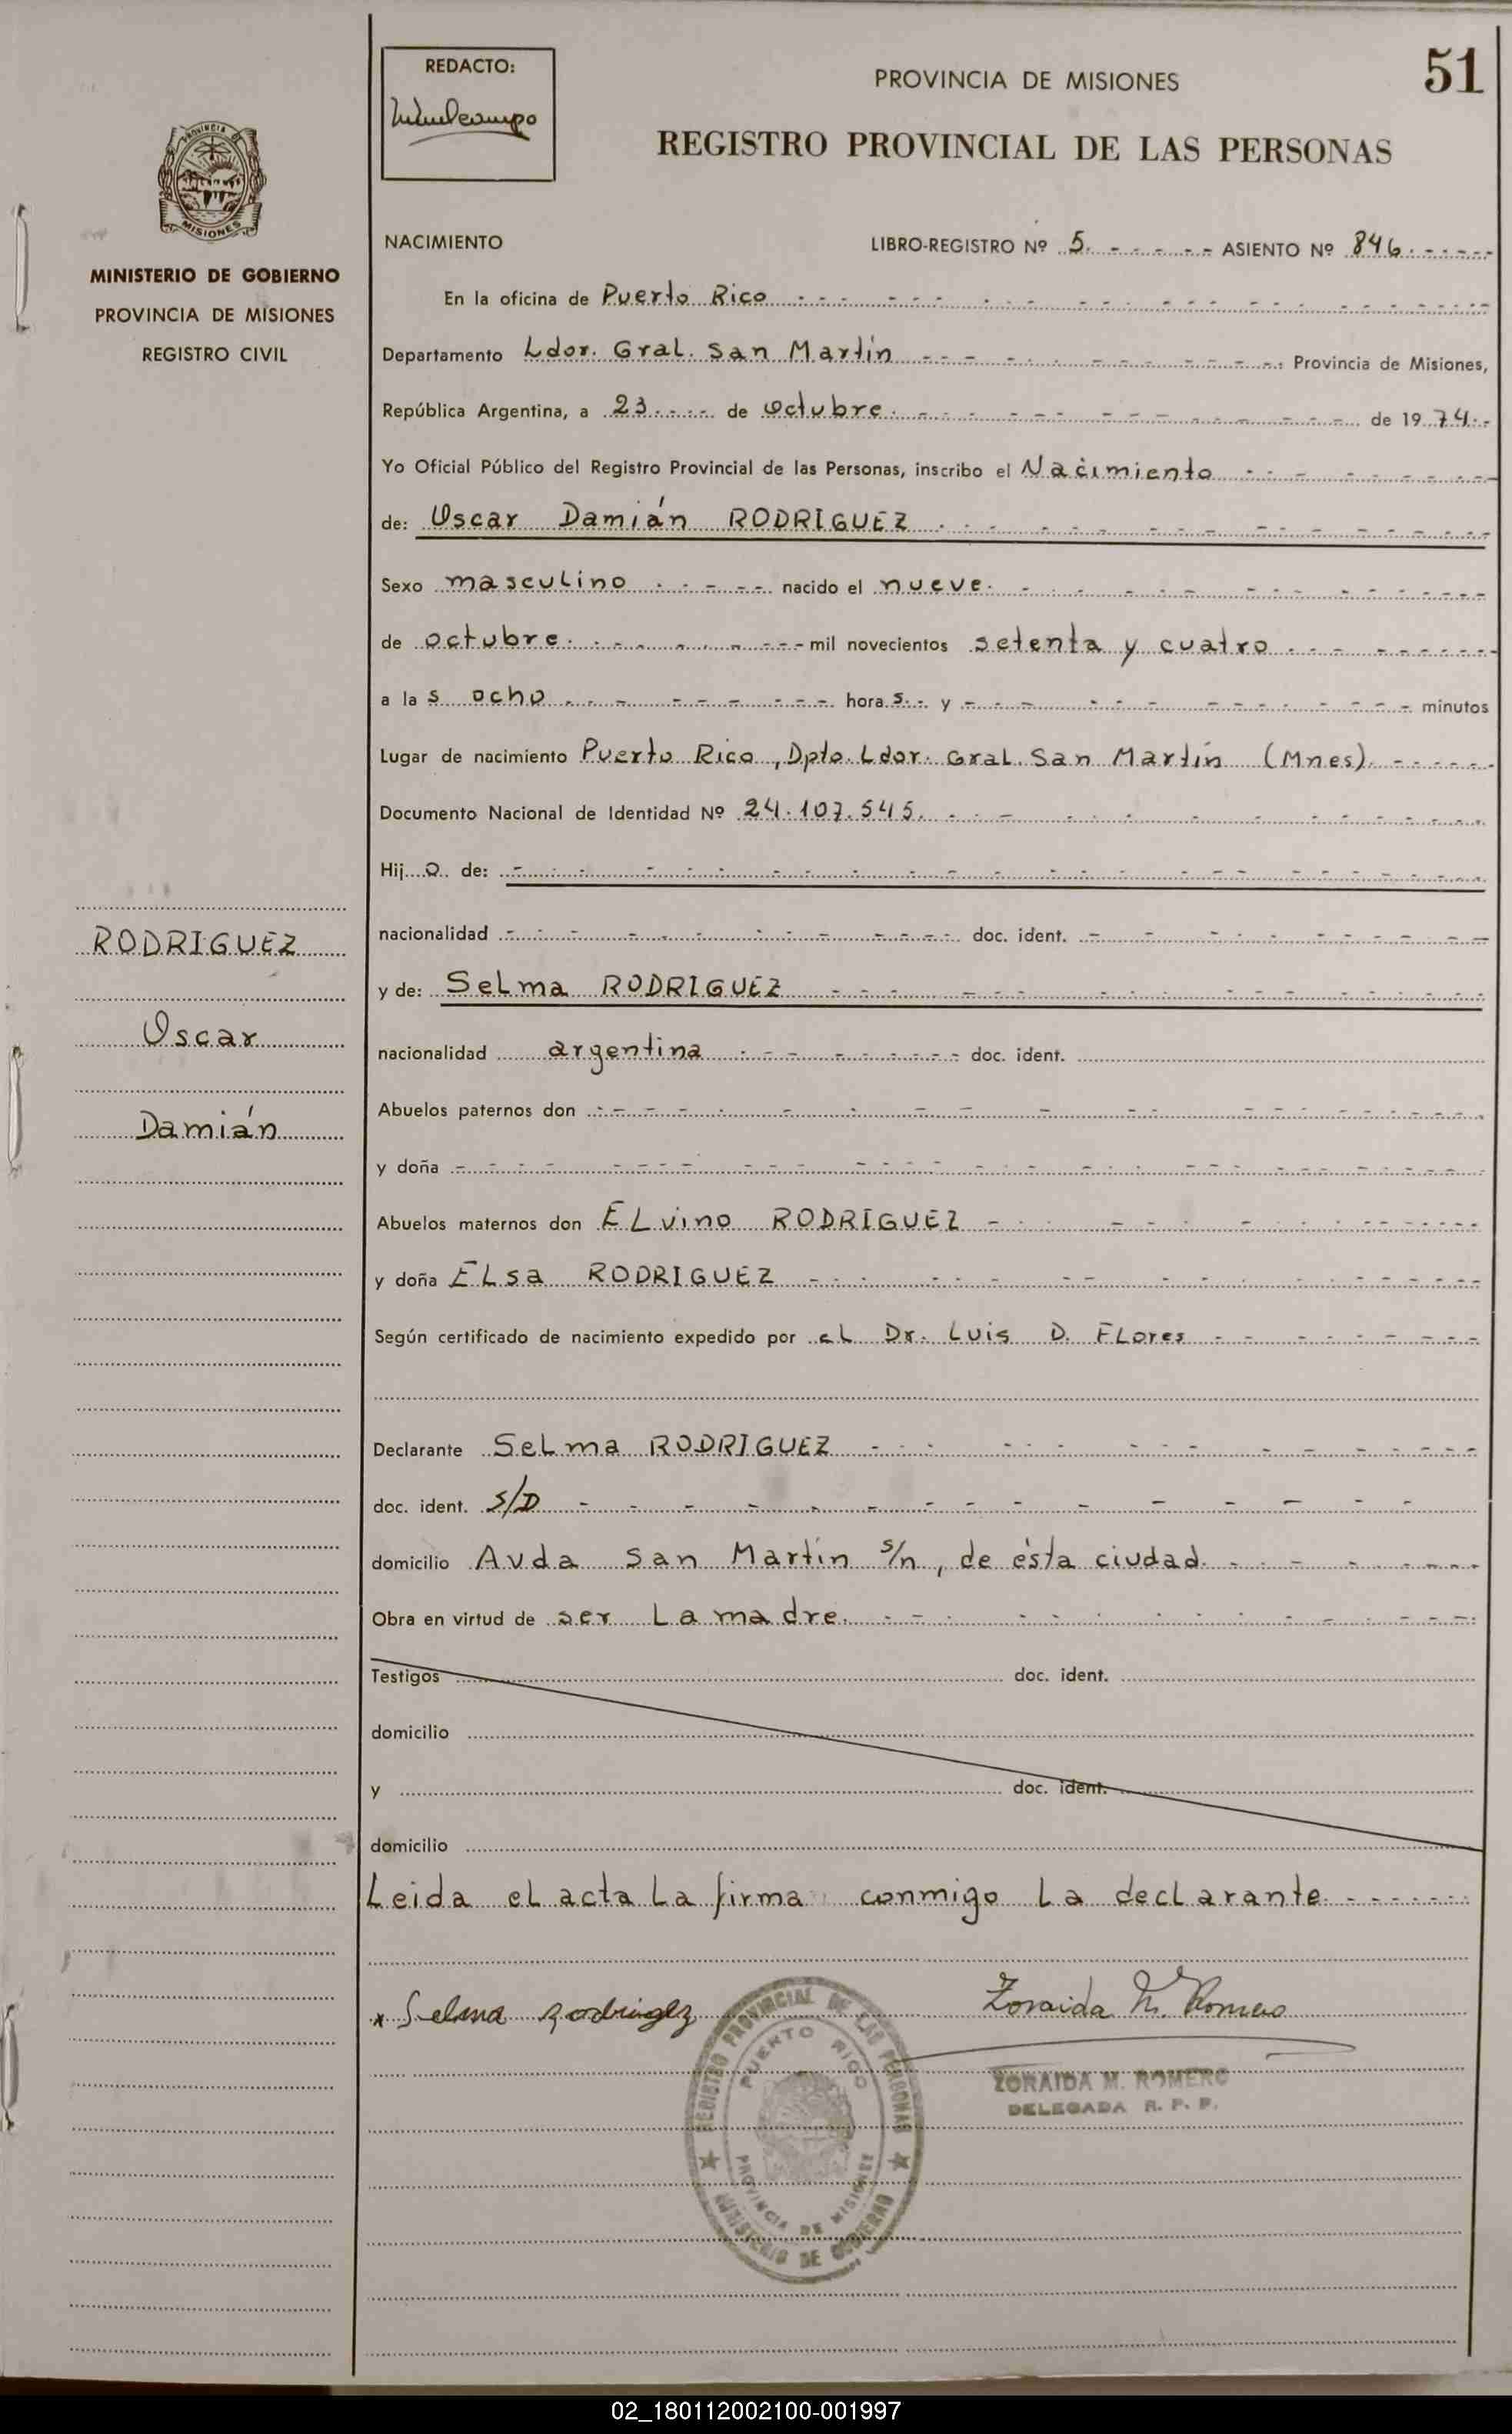 REDACTO:
PROVINCIA DE MISIONES
51
REGISTRO PROVINCIAL DE LAS PERSONAS
PROVINCIA DE
MISIONES
MINISTERIO DE GOBIERNO
PROVINCIA DE MISIONES
REGISTRO CIVIL
NACIMIENTO LIBRO-REGISTRO Nº 5 ASIENTO Nº 846
En la oficina de Puerto Rico
Departamento Ldor. Gral. San Martín Provincia de Misiones,
República Argentina, a 23 de octubre de 1974
Yo Oficial Público del Registro Provincial de las Personas, inscribo el Nacimiento
de: Oscar Damián RODRIGUEZ
Sexo masculino nacido el nueve
de octubre mil novecientos setenta y cuatro
a las ocho horas y minutos
Lugar de nacimiento Puerto Rico, Dpto. Ldor. Gral. San Martín (Mnes)
Documento Nacional de Identidad Nº 24.107.545.
Hijo de:
nacionalidad doc. ident.
y de: Selma RODRIGUEZ
nacionalidad argentina doc. ident.
Abuelos paternos don
y doña
Abuelos maternos don Elvino RODRIGUEZ
y doña Elsa RODRIGUEZ
Según certificado de nacimiento expedido por el Dr. Luis D. Flores
Declarante Selma RODRIGUEZ
doc. ident. S/D
domicilio Avda San Martín s/n, de ésta ciudad.
Obra en virtud de ser la madre.
Testigos doc. ident.
domicilio
y doc. ident.
domicilio
Leida el acta la firma conmigo la declarante
RODRIGUEZ
Oscar
Damián
x Selma Rodriguez
Zoraida M. Romero
ZORAIDA M. ROMERO
DELEGADA R. P. P.
REGISTRO PROVINCIAL DE LAS PERSONAS
PUERTO RICO
PROVINCIA DE MISIONES
MINISTERIO DE GOBIERNO
02_180112002100-001997